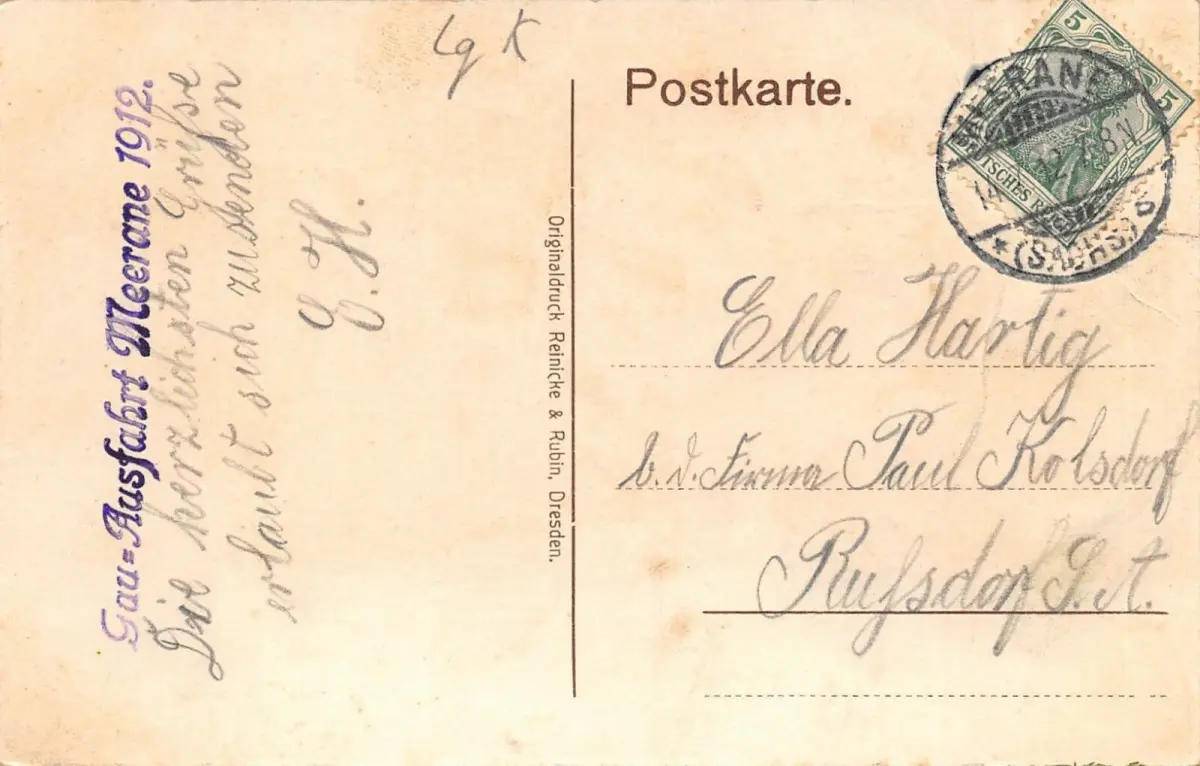 Lg K
Gau=Ausfahrt Meerane 1912.
Die herzlichsten Grüße
erlaubt sich zusenden
E. H.
Originaldruck Reinicke & Rubin, Dresden.
Postkarte.
5
5
DEUTSCHES R
MEERANE
12 7-8N
* (SACHS.) b
Ella Hartig
b. d. Firma Paul Kolsdorf
Rußdorf S. A.